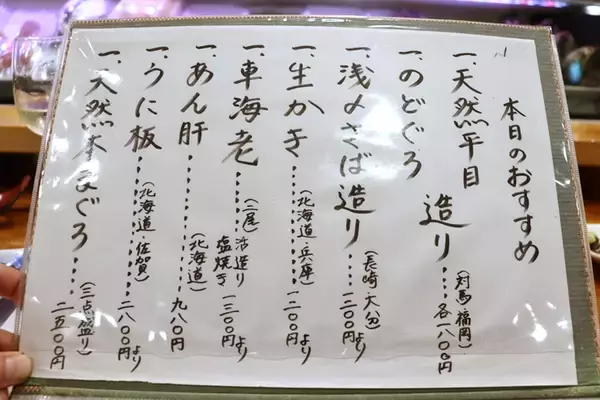 本日のおすすめ
一、天然平目
一、のどぐろ
造り
(対馬・福岡)
各一八〇〇円
一、浅〆さば造り‥‥
(長崎・大分)
一二〇〇円より
一、生かき‥‥‥‥
(北海道・兵庫)
一二〇〇円より
一、車海老‥‥‥‥
(二尾)
活造り
塩焼き
一三〇〇円より
一、あん肝‥‥‥‥
(北海道)
九八〇円
一、うに板‥‥‥‥
(北海道・佐賀)
二八〇〇円より
一、天然本まぐろ‥‥
(三点盛り)
二五〇〇円